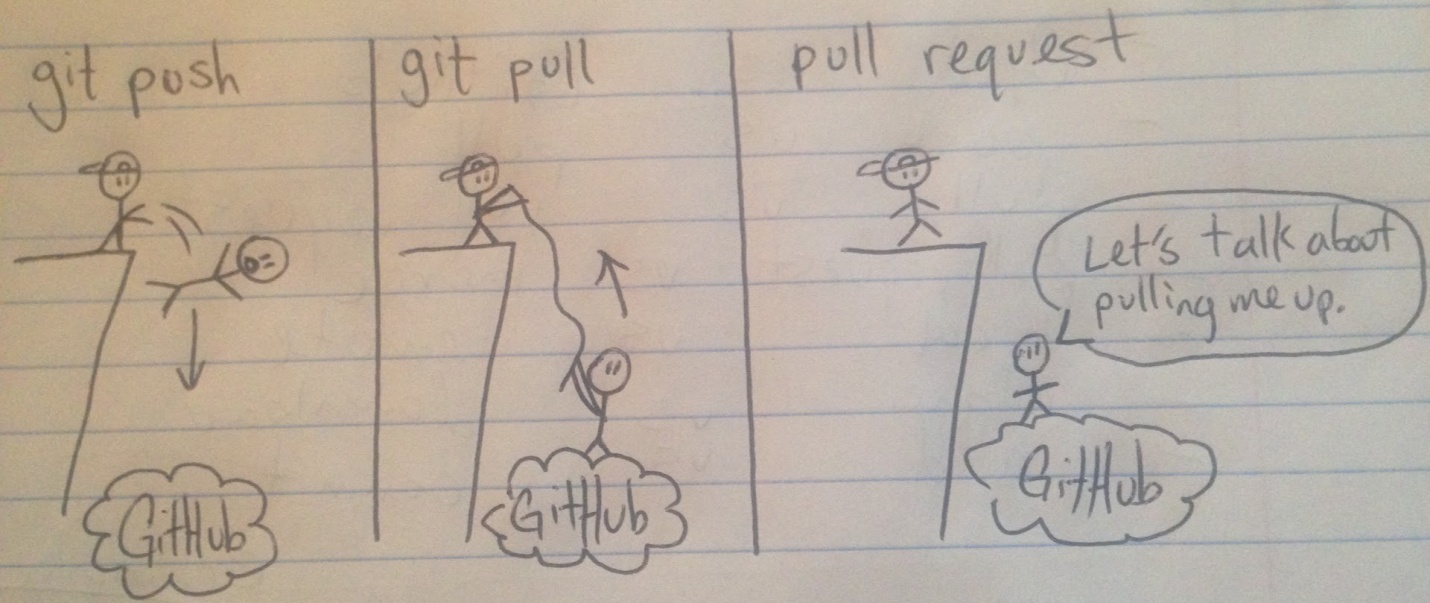 git push
GitHub
git pull
GitHub
pull request
Let's talk about
pulling me up.
GitHub